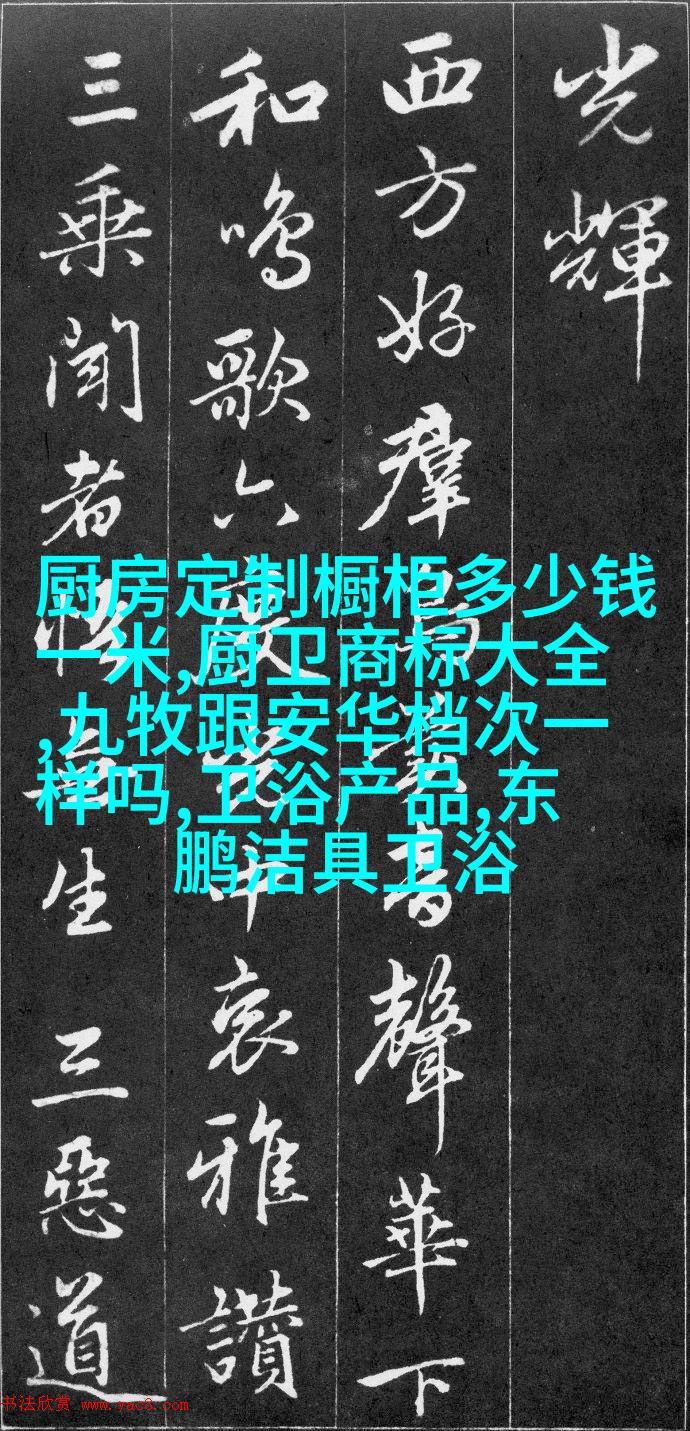 光輝
西方好羣聲華下
和鳴歌六度中哀雅讚
三乘聞者悟無生三惡道
厨房定制橱柜多少钱
一米,厨卫商标大全
,九牧跟安华档次一
样吗,卫浴产品,东
鹏洁具卫浴
书法欣赏 www.yac8.com